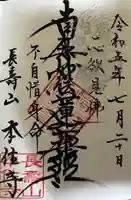 令和五年七月二十日
一心欲見佛
南無妙法蓮華経
不自惜身命
長壽山 本住寺
長壽山